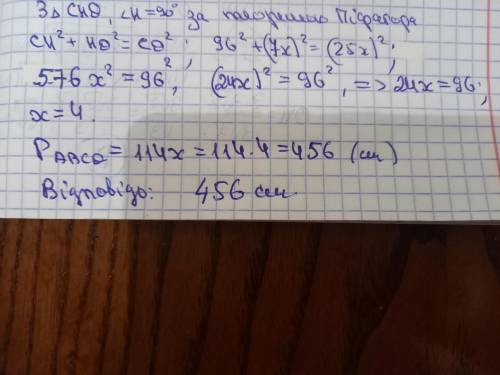 З Δ CHD, ∠H=90° за теоремою Піфагора
CH² + HD² = CD²; 96² + (7x)² = (25x)²;
576x² = 96², (24x)² = 96², => 24x = 96;
x = 4.
P_ABCD = 114x = 114·4 = 456 (см)
Відповідь: 456 см